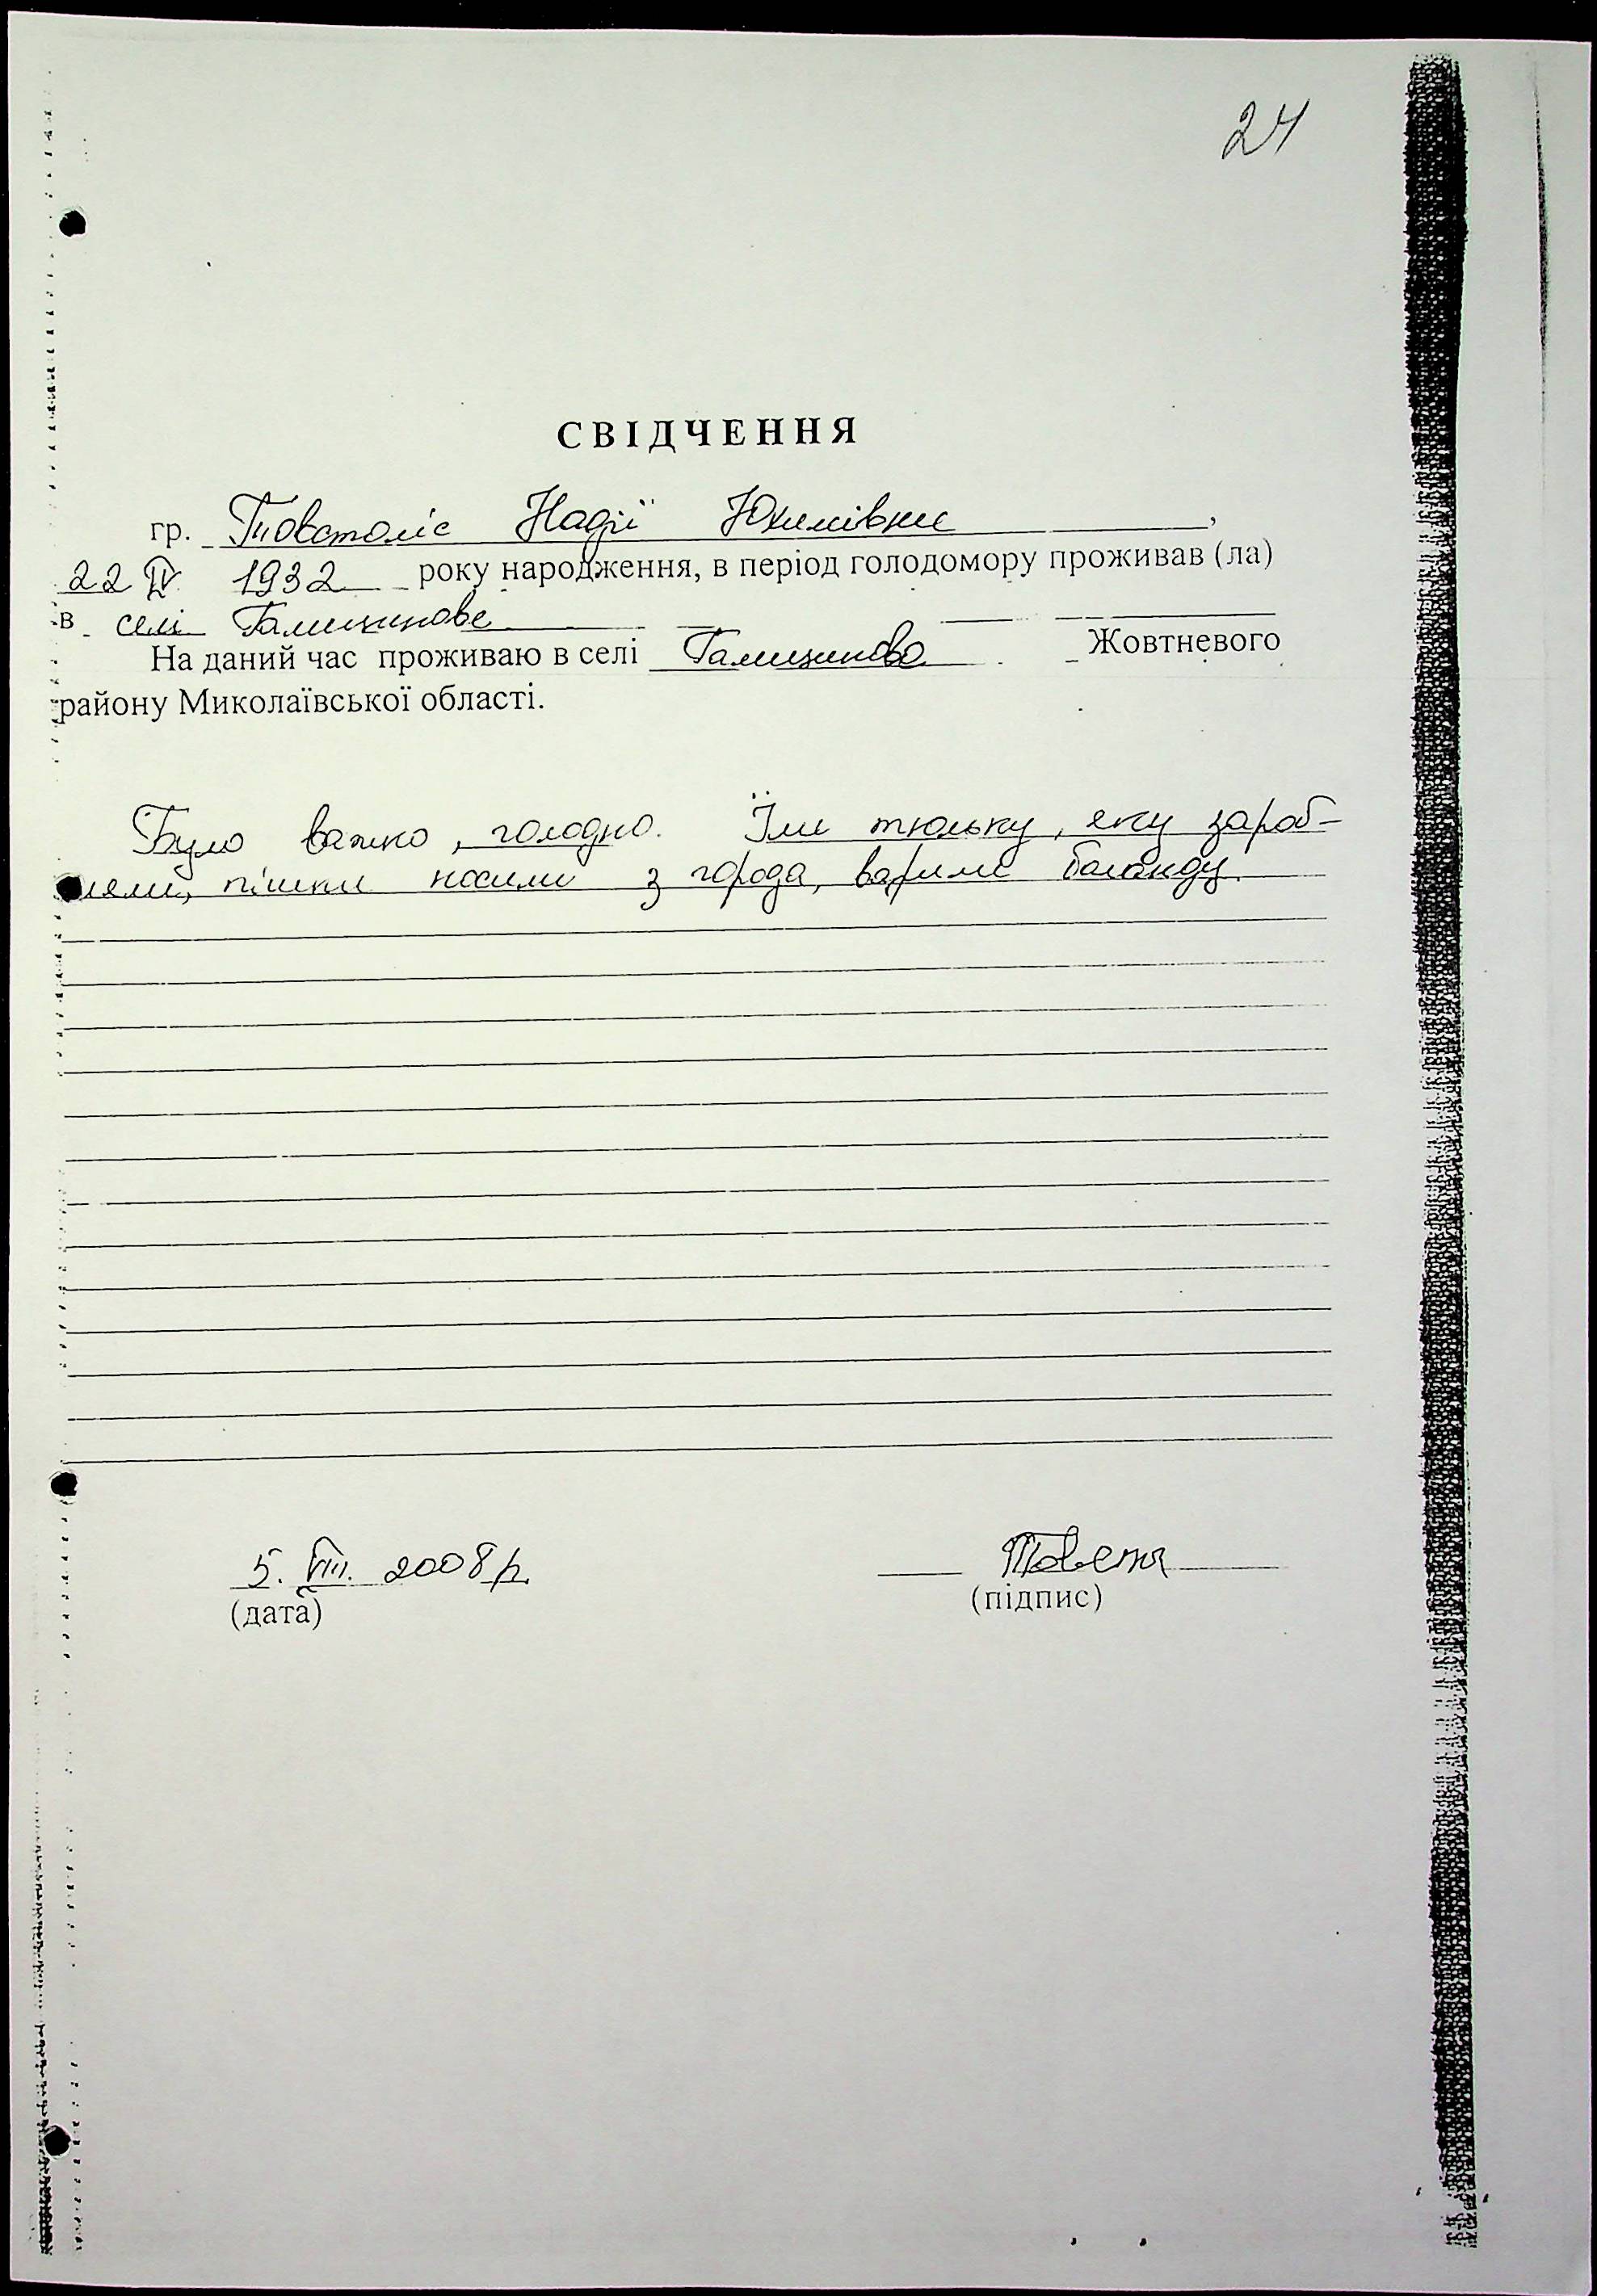 24
СВІДЧЕННЯ
гр. Товстоліс Надії Юхимівни,
22 IV 1932 року народження, в період голодомору проживав (ла)
в селі Галицинове
На даний час проживаю в селі Галициново Жовтневого
району Миколаївської області.
Було важко, голодно. Їли тюльку, яку зароб-
ляли, пішки носили з города, варили баланду.
5. VIII. 2008 р.
(дата)
(підпис)